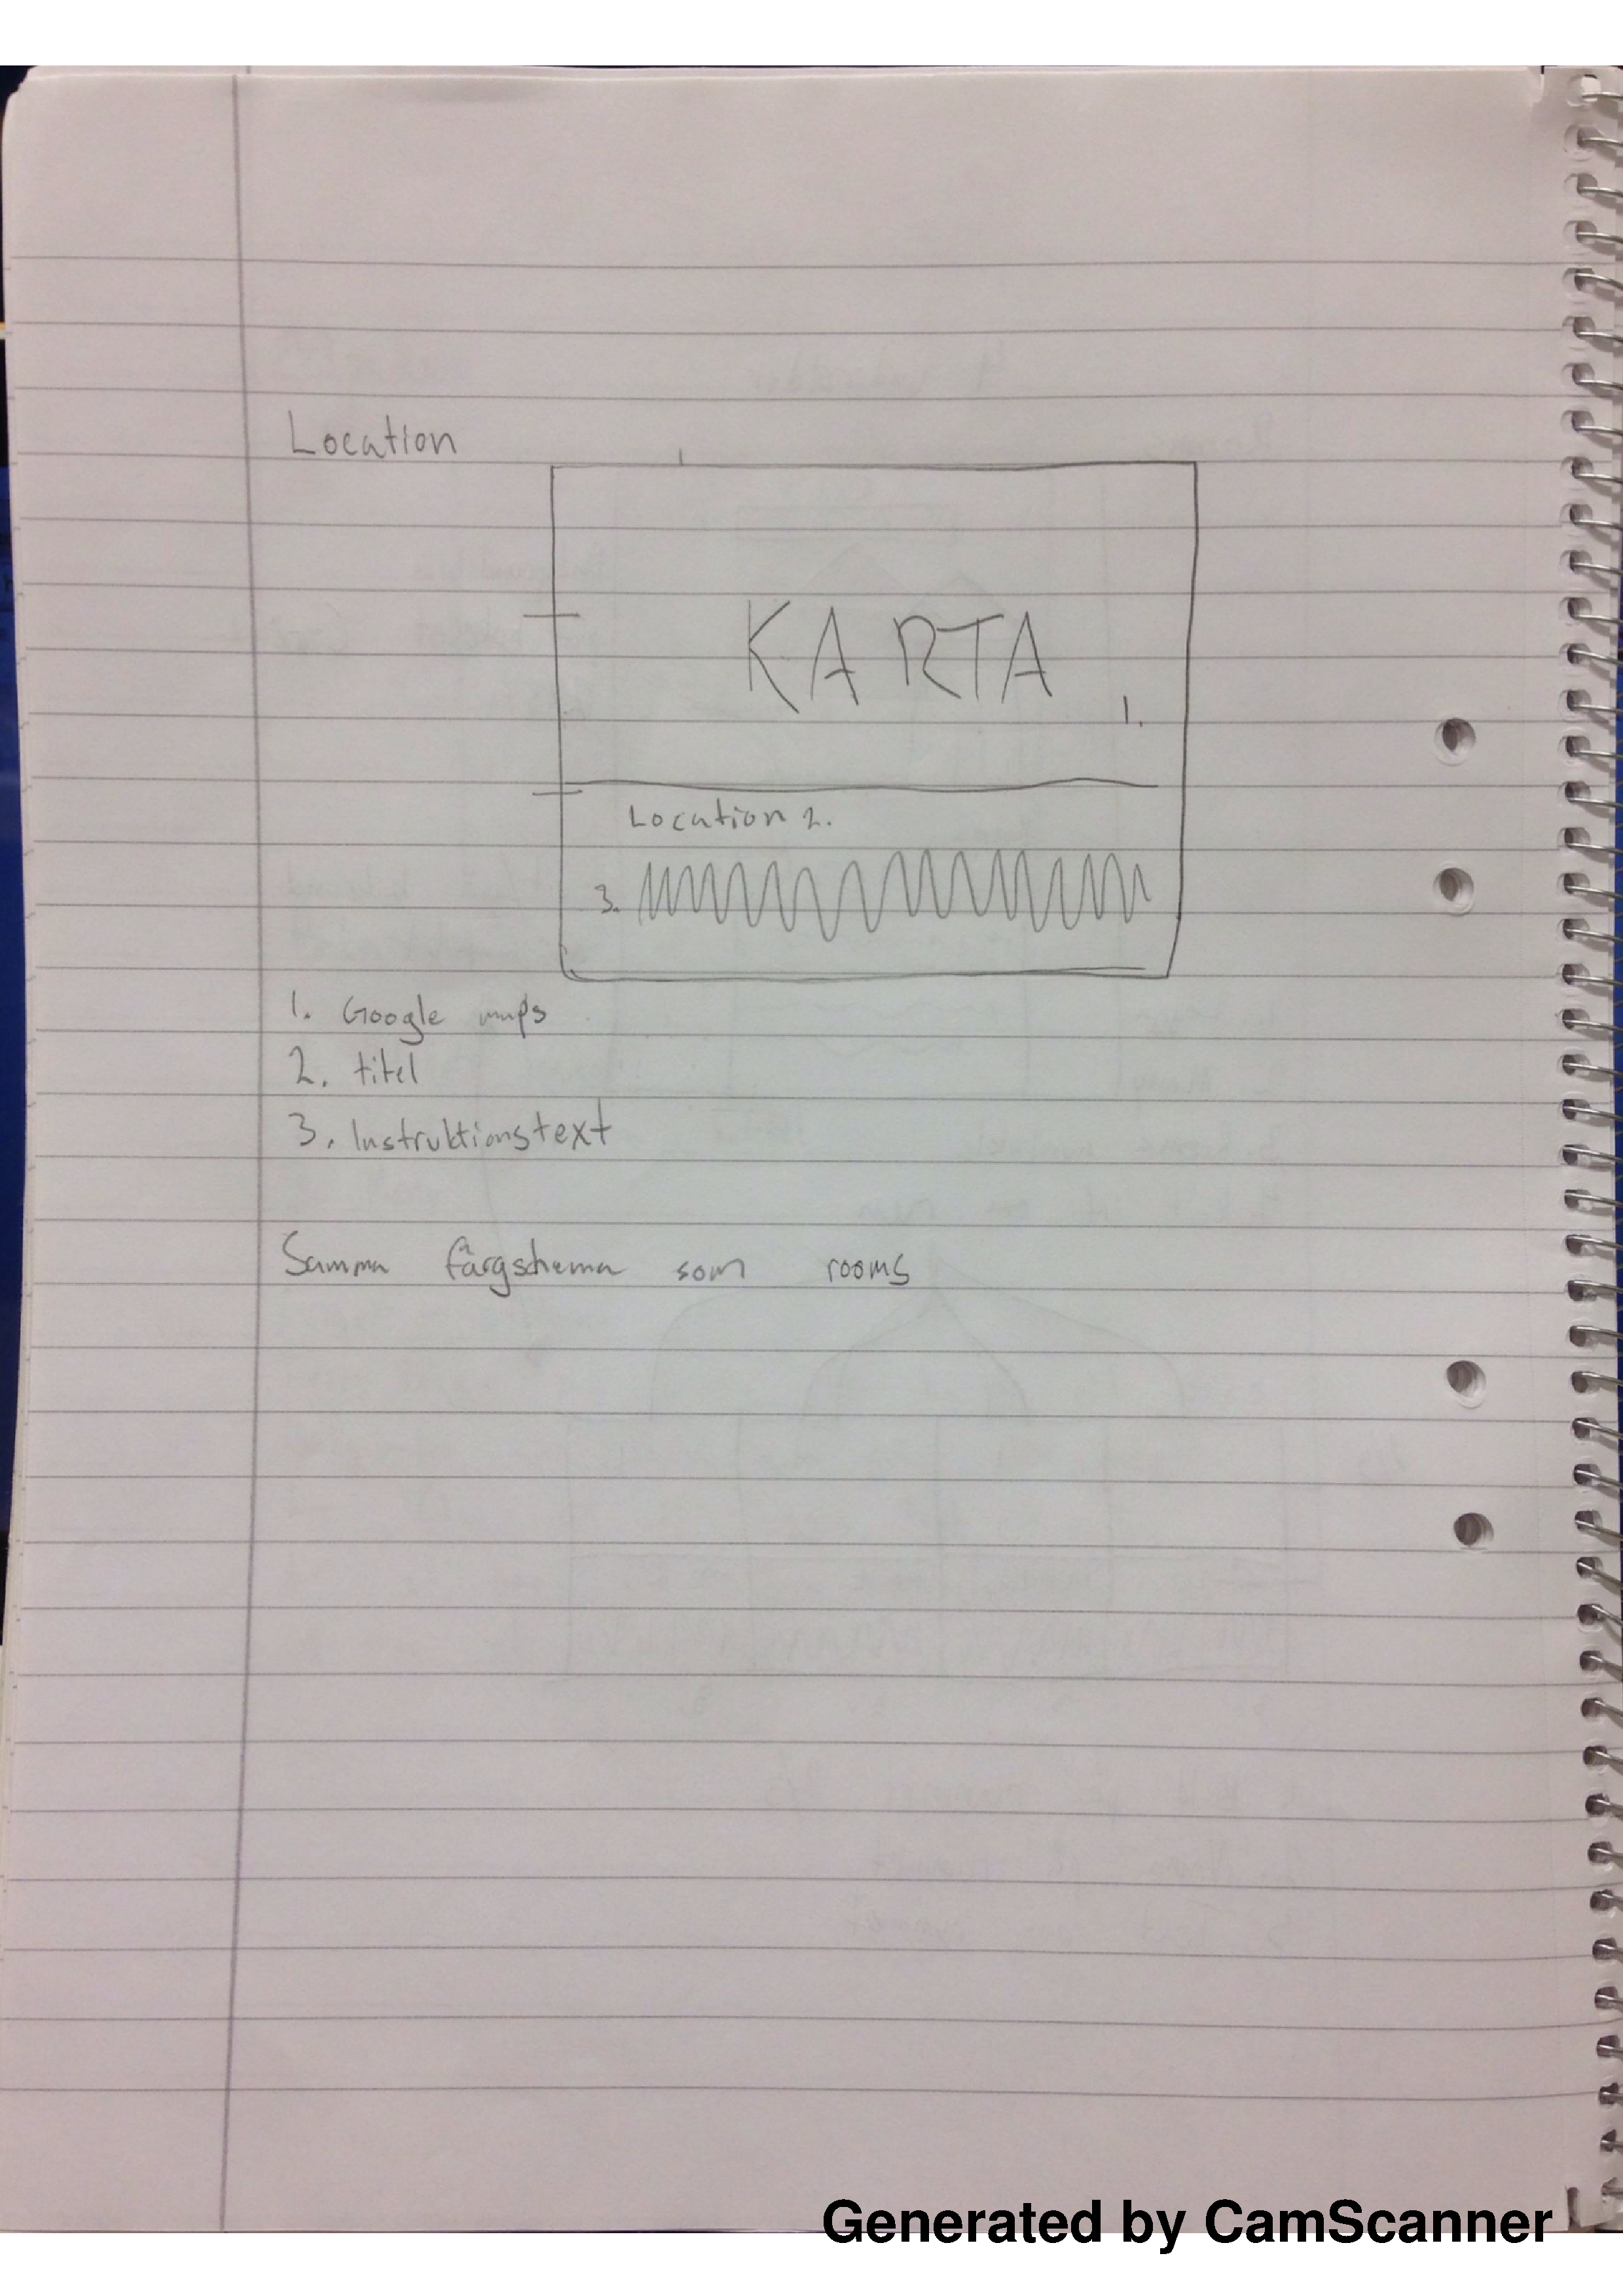 Location
KARTA
1.
Location 2.
3.
1. Google maps
2. titel
3. Instruktionstext
Samma färgschema som rooms
Generated by CamScanner